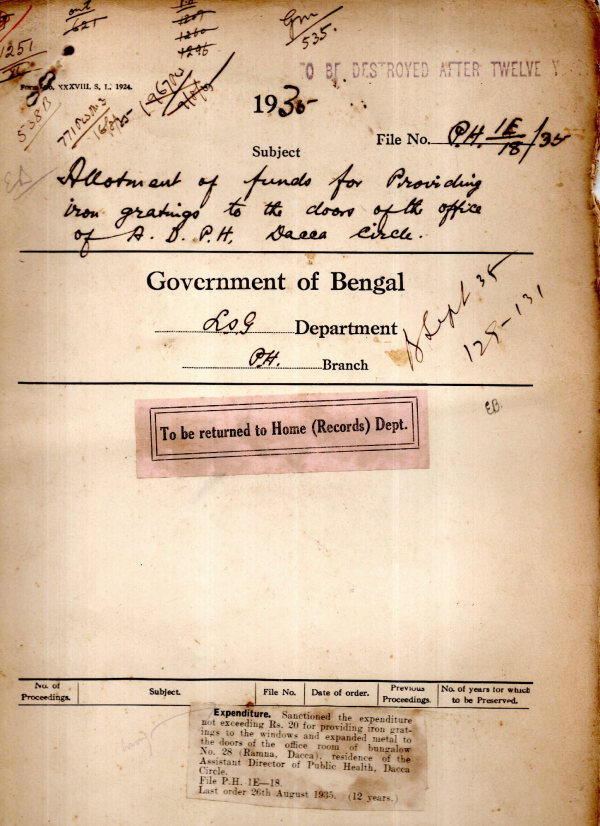 out
621
1251
Gm
535.
TO BE DESTROYED AFTER TWELVE Y
XXXVIII, S. L., 1924.
538B
1935
File No. P.H. 1E/18/35
Subject
Allotment of funds for Providing
iron gratings to the doors of the office
of A. D. P. H, Dacca Circle.
Government of Bengal
LSG Department
P.H. Branch
B Sept 35
129-131
EB.
To be returned to Home (Records) Dept.
No. of Proceedings. Subject. File No. Date of order. Previous Proceedings. No. of years for which to be Preserved.
Expenditure. Sanctioned the expenditure
not exceeding Rs. 20 for providing iron grat-
ings to the windows and expanded metal to
the doors of the office room of bungalow
No. 28 (Ramna, Dacca), residence of the
Assistant Director of Public Health, Dacca
Circle.
File P.H. 1E—18.
Last order 26th August 1935. (12 years.)